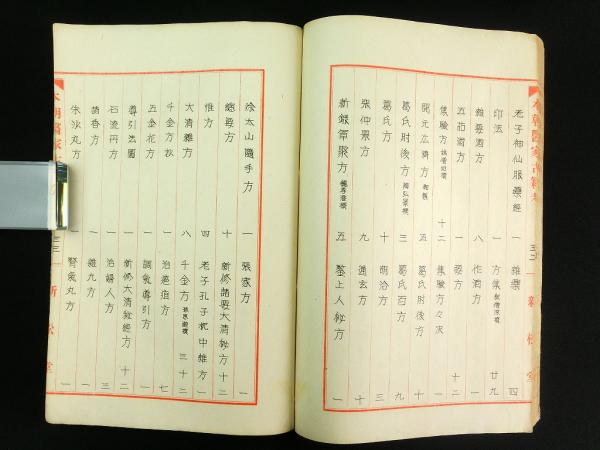 老子神仙服藥經 一 雜藥 四
印法 一 方集 廿九
雜要酒方 八 作酒方 一
五石湯方 一 要方 十二
集驗方 十二 集驗方 一
開元広済方 五 葛氏肘後方 十
葛氏肘後方 三 葛氏百方 九
葛氏方 十 胡洽方 三
張仲景方 九 通玄方 十
新録単聚方 五 上人秘方 一
徐太山隨手方 一 張家方 一
總要方 十 新修諸要大清秘方 十二
惟方 四 老子孔子枕中雜方 一
大清雜方 八 千金方 三十二
千金方 一 治癰疽方 七
五金花方 一 調氣導引方 一
導引法図 一 新修大清秘経方 十二
石流丹方 一 治婦人方 十三
諸香方 一 雜丸方 一
朱沙丸方 腎氣丸方 一